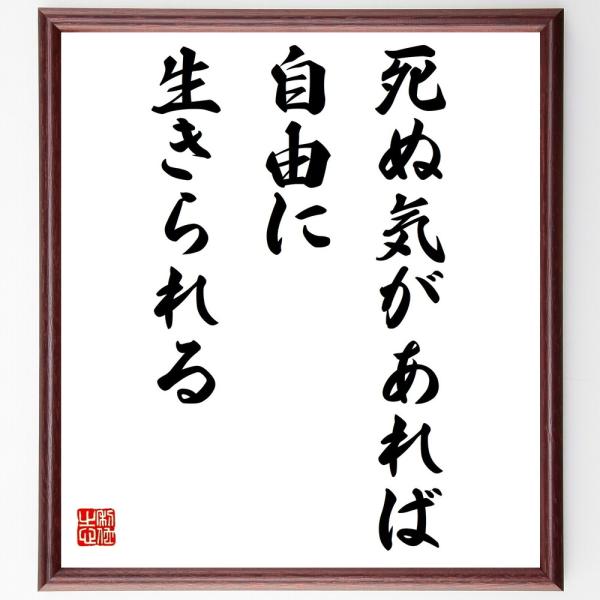 死ぬ気があれば
自由に
生きられる